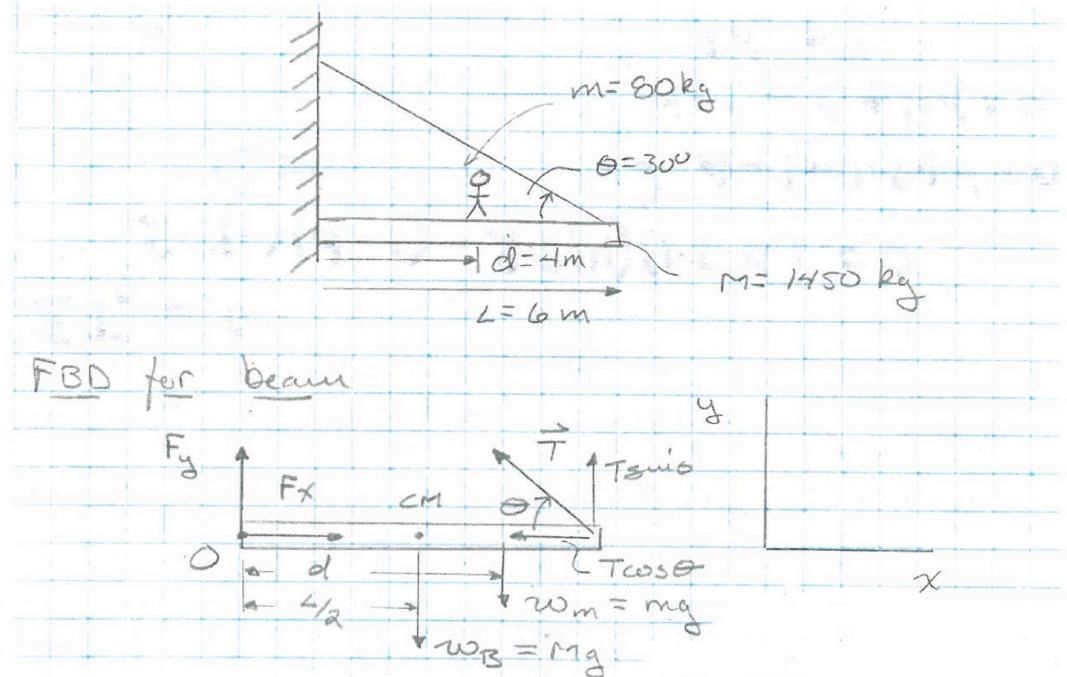 m = 80 kg
θ = 30°
d = 4m
M = 1450 kg
L = 6 m
FBD for beam
y
Fy
T
Tsinθ
Fx
CM
θ
O
d
Tcosθ
x
L/2
wm = mg
wB = Mg